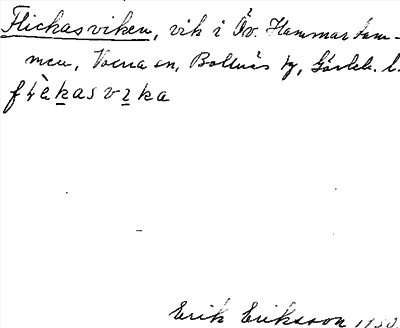 Flickasviken, vik i Öv. Hammardam-
men, Voxna sn, Bollnäs tg, Gävleb. l.
flèkasvɪka
Erik Eriksson 1930.